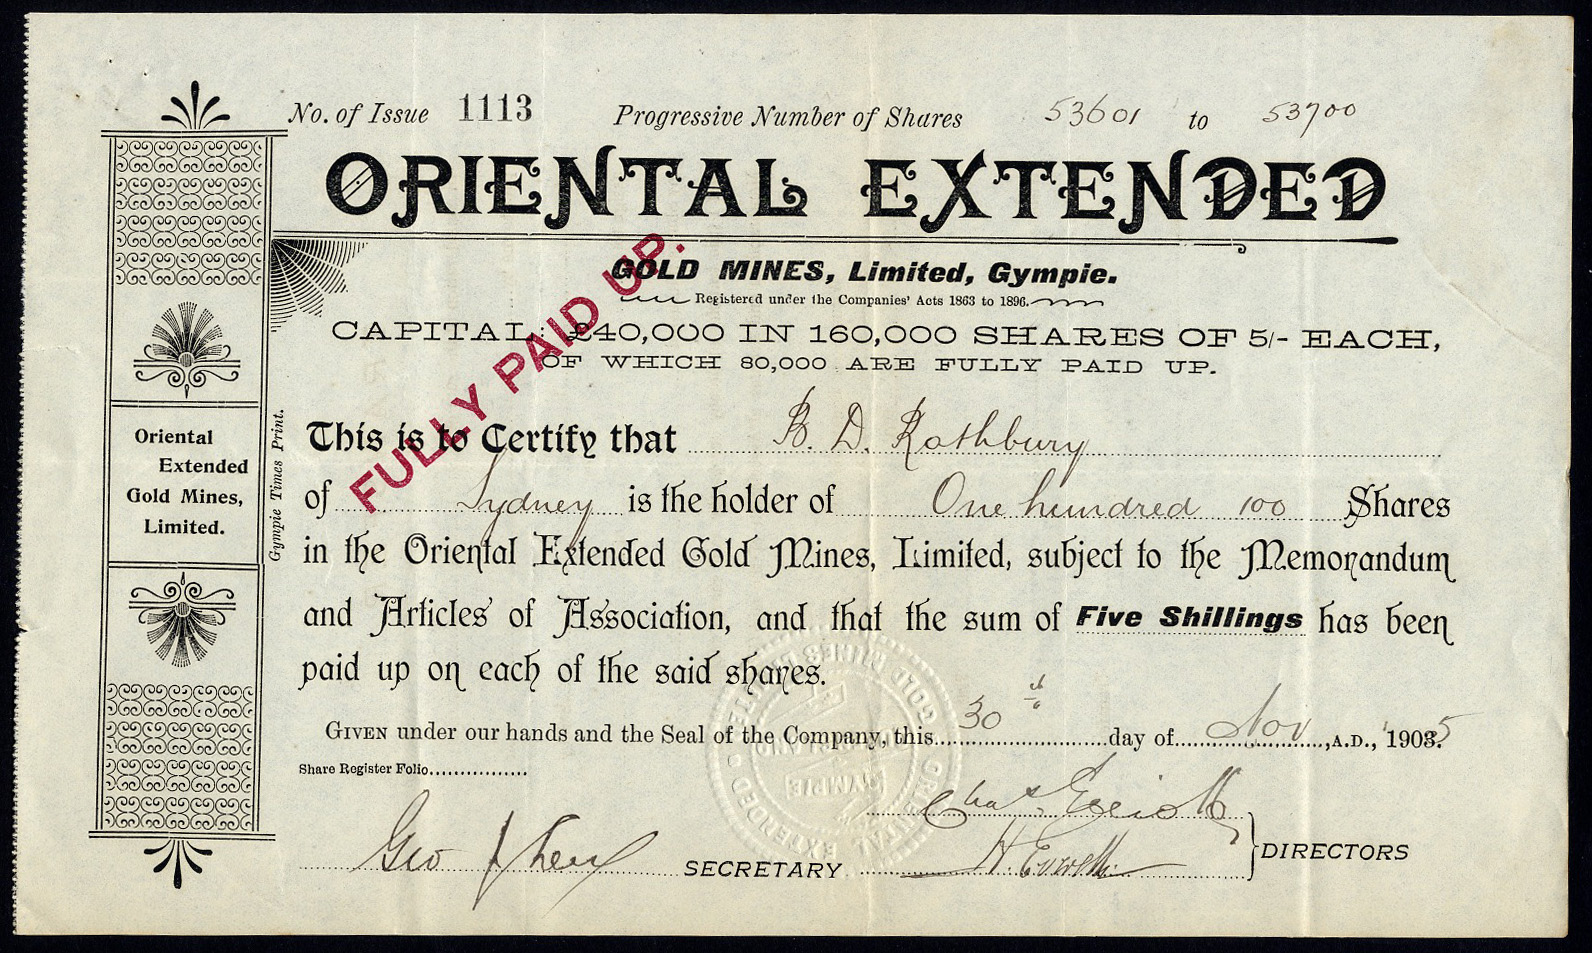 No. of Issue 1113 Progressive Number of Shares 53601 to 53700
ORIENTAL EXTENDED
GOLD MINES, Limited, Gympie.
Registered under the Companies' Acts 1863 to 1896.
CAPITAL: £40,000 IN 160,000 SHARES OF 5/- EACH,
OF WHICH 80,000 ARE FULLY PAID UP.
FULLY PAID UP.
This is to Certify that B. D. Rothbury
of Sydney is the holder of One hundred 100 Shares
in the Oriental Extended Gold Mines, Limited, subject to the Memorandum
and Articles of Association, and that the sum of Five Shillings has been
paid up on each of the said shares.
GIVEN under our hands and the Seal of the Company, this 30th day of Nov, A.D., 1905
Share Register Folio
Geo SECRETARY
Chas
H. DIRECTORS
Oriental
Extended
Gold Mines,
Limited.
Gympie Times Print.
ORIENTAL EXTENDED GOLD MINES
GYMPIE